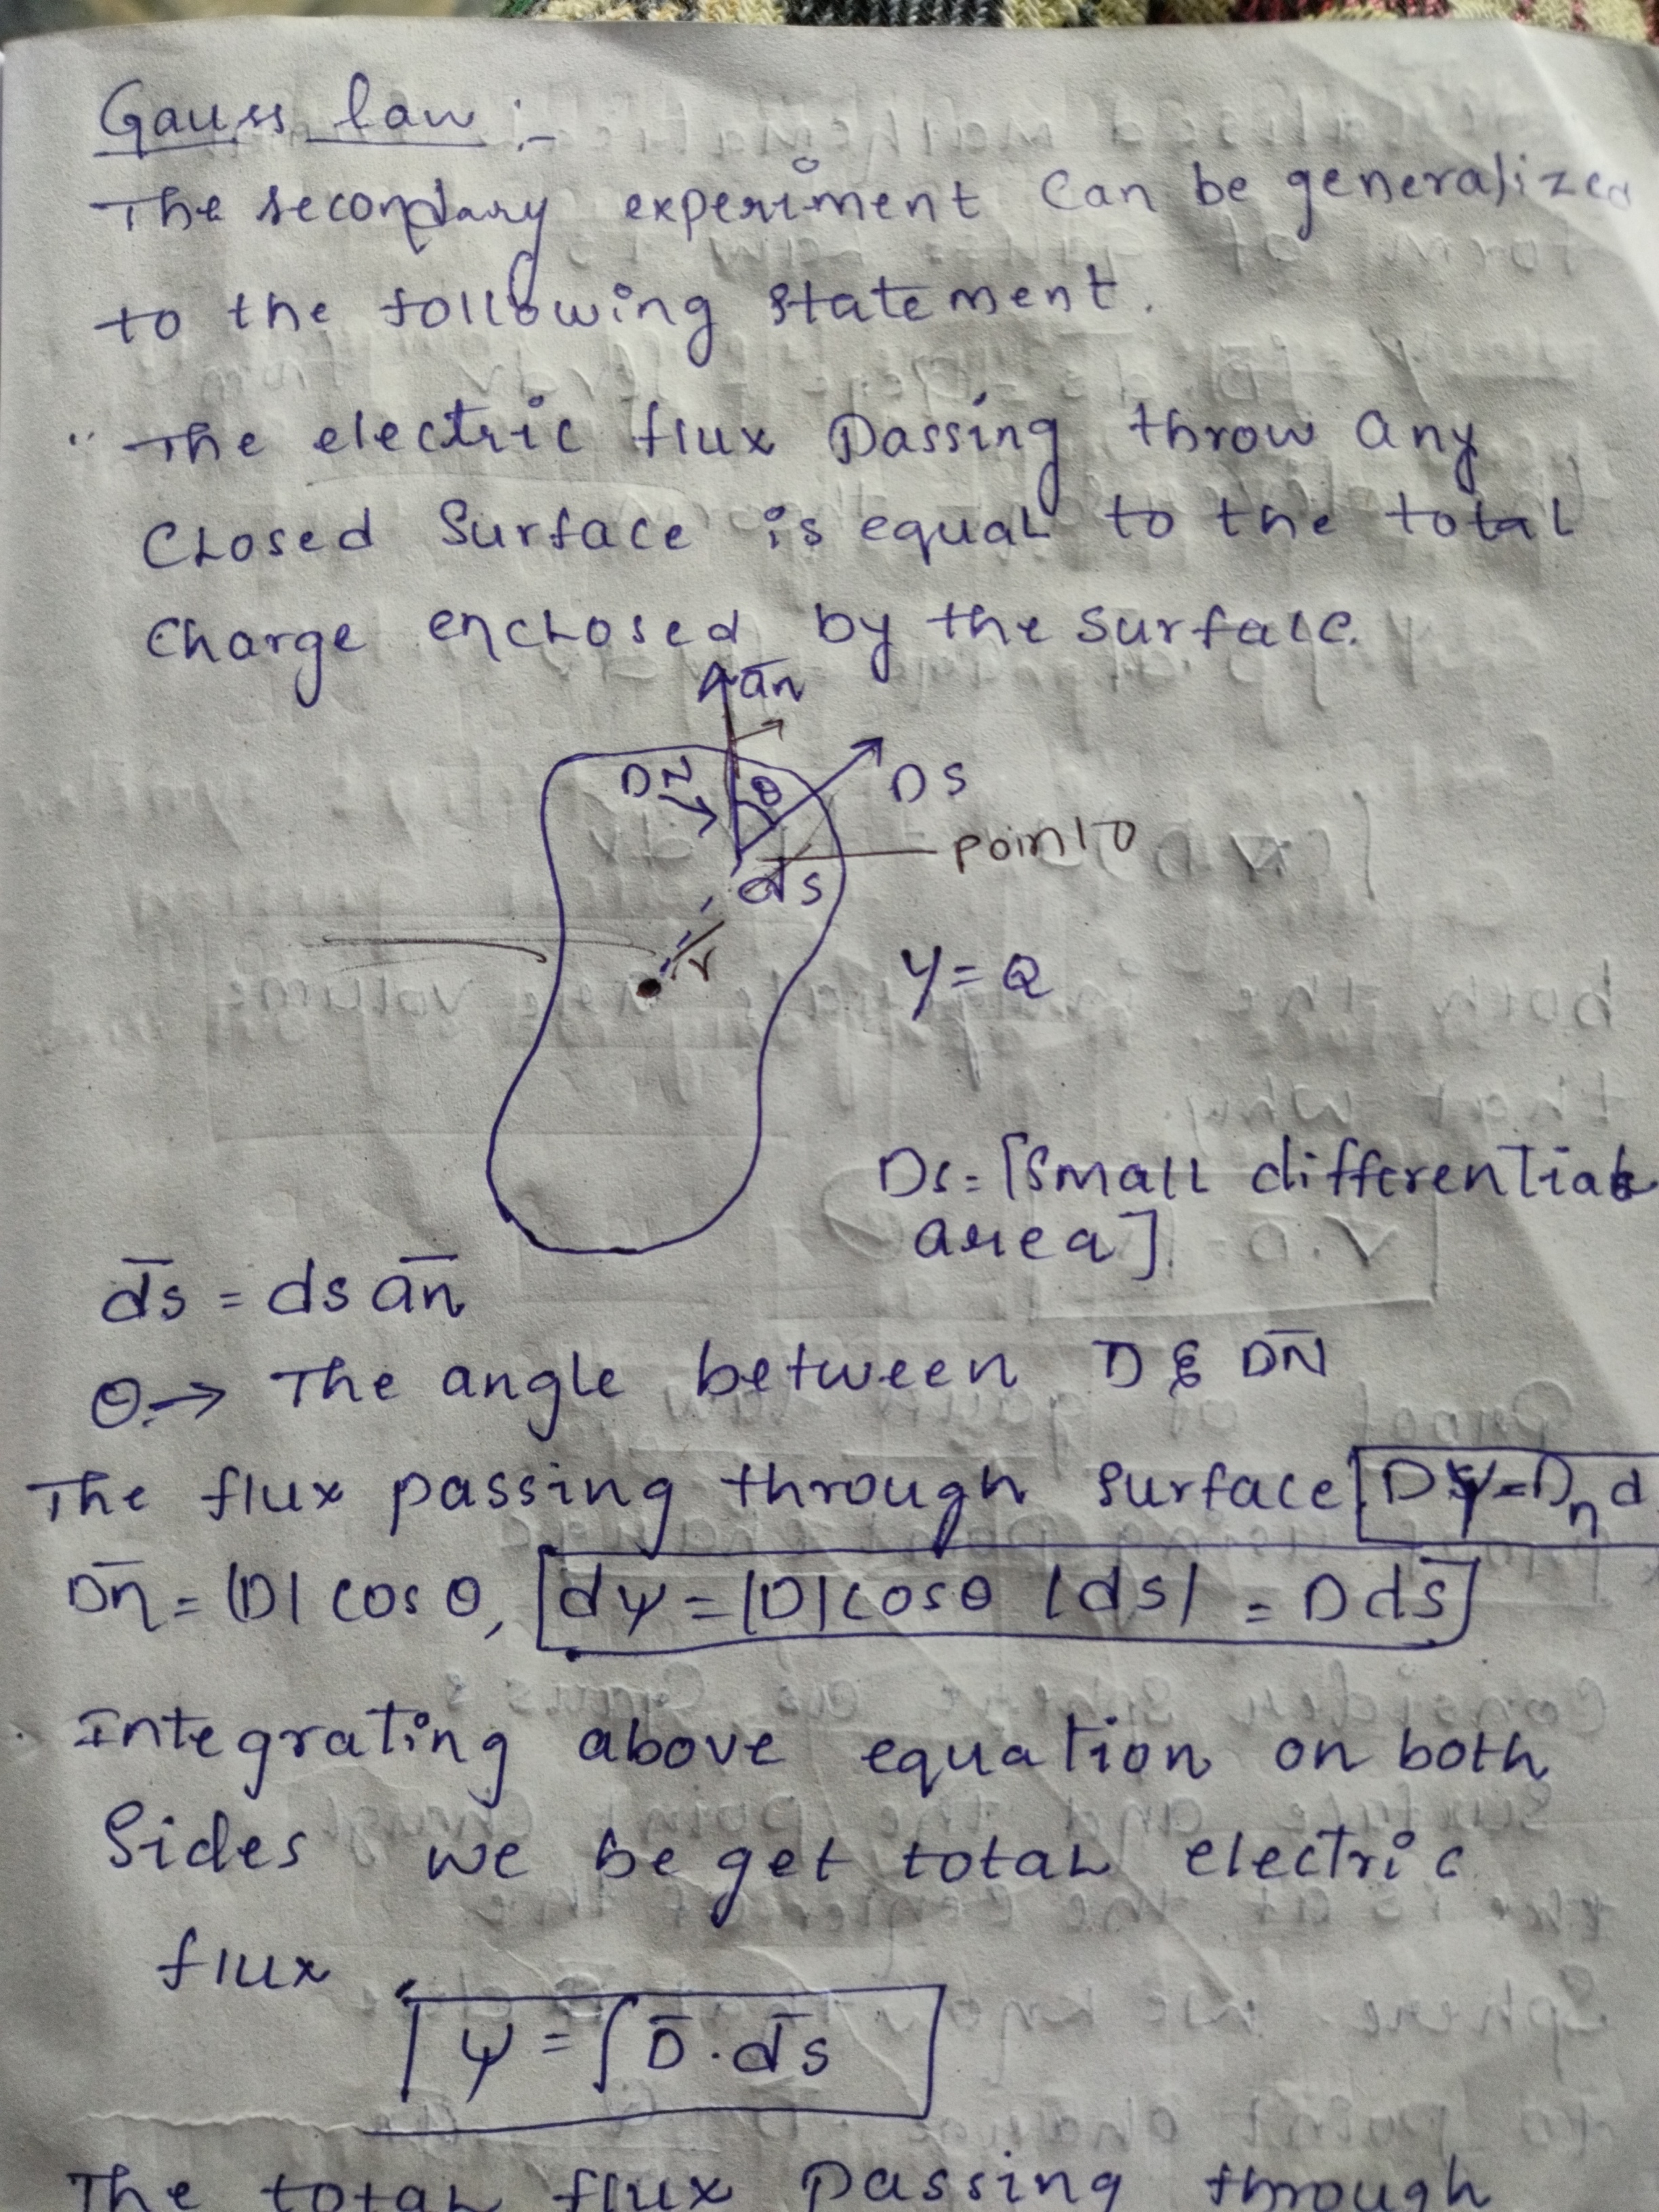 Gauss law :-
The secondary experiment Can be generalized
to the following statement.
" The electric flux Passing throw any
Closed Surface is equal to the total
Charge enclosed by the surface.
an
DN
θ
DS
point
ds
r
ψ = Q
Ds = [Small differential
area]
d̅s = ds a̅n
θ → The angle between D & DN̅
The flux passing through surface [Dψ = Dn d
D̅n = |D| cos θ, [dψ = |D| cos θ |ds| = D ds̅]
Integrating above equation on both
Sides we be get total electric
flux
ψ = ∫ D̅ . d̅s
The total flux passing through